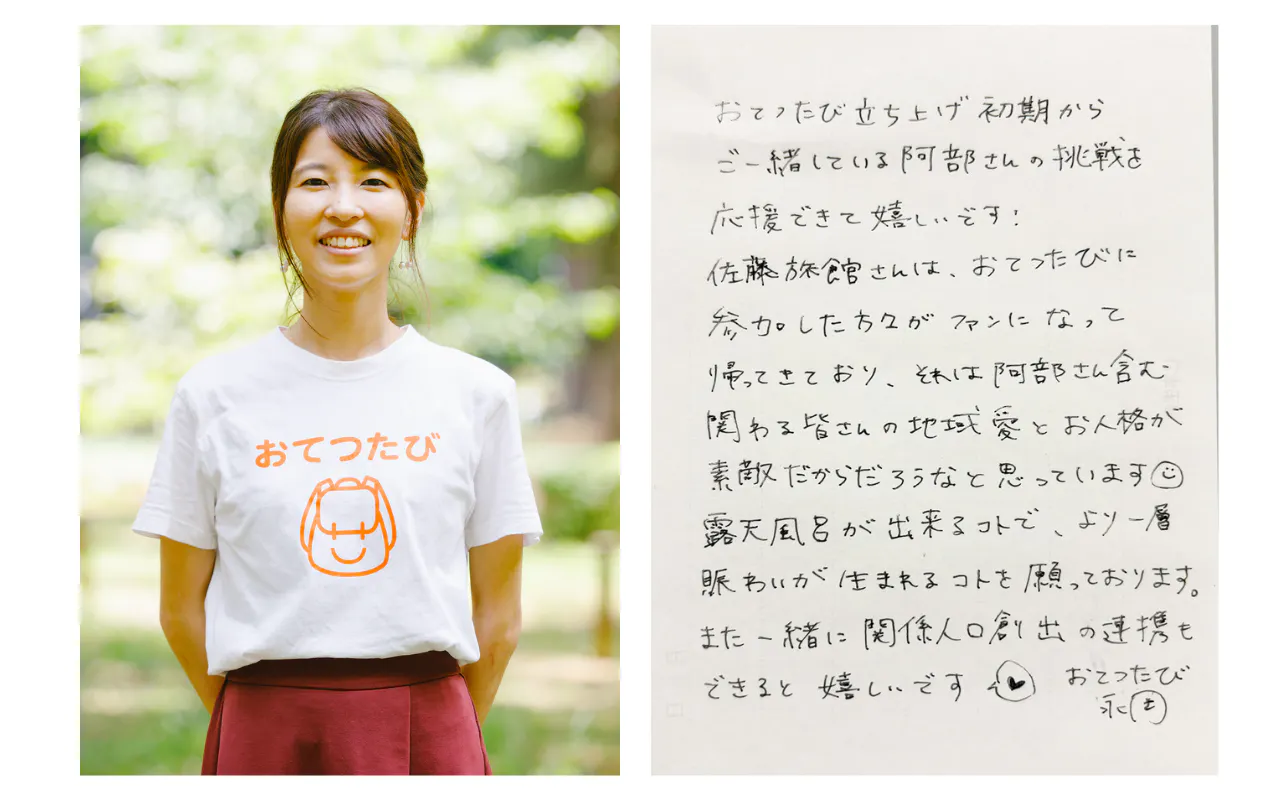 おてつたび
おてつたび立ち上げ 初期から
ご一緒している阿部さんの挑戦を
応援できて嬉しいです!
佐藤旅館さんは、おてつたびに
参加した方々がファンになって
帰ってきており、それは阿部さん含む
関わる皆さんの地域愛とお人格が
素敵だからだろうなと思っています
露天風呂が出来るコトで、より一層
賑わいが生まれるコトを願っております。
また一緒に関係人口創出の連携も
できると嬉しいです
おてつたび
永